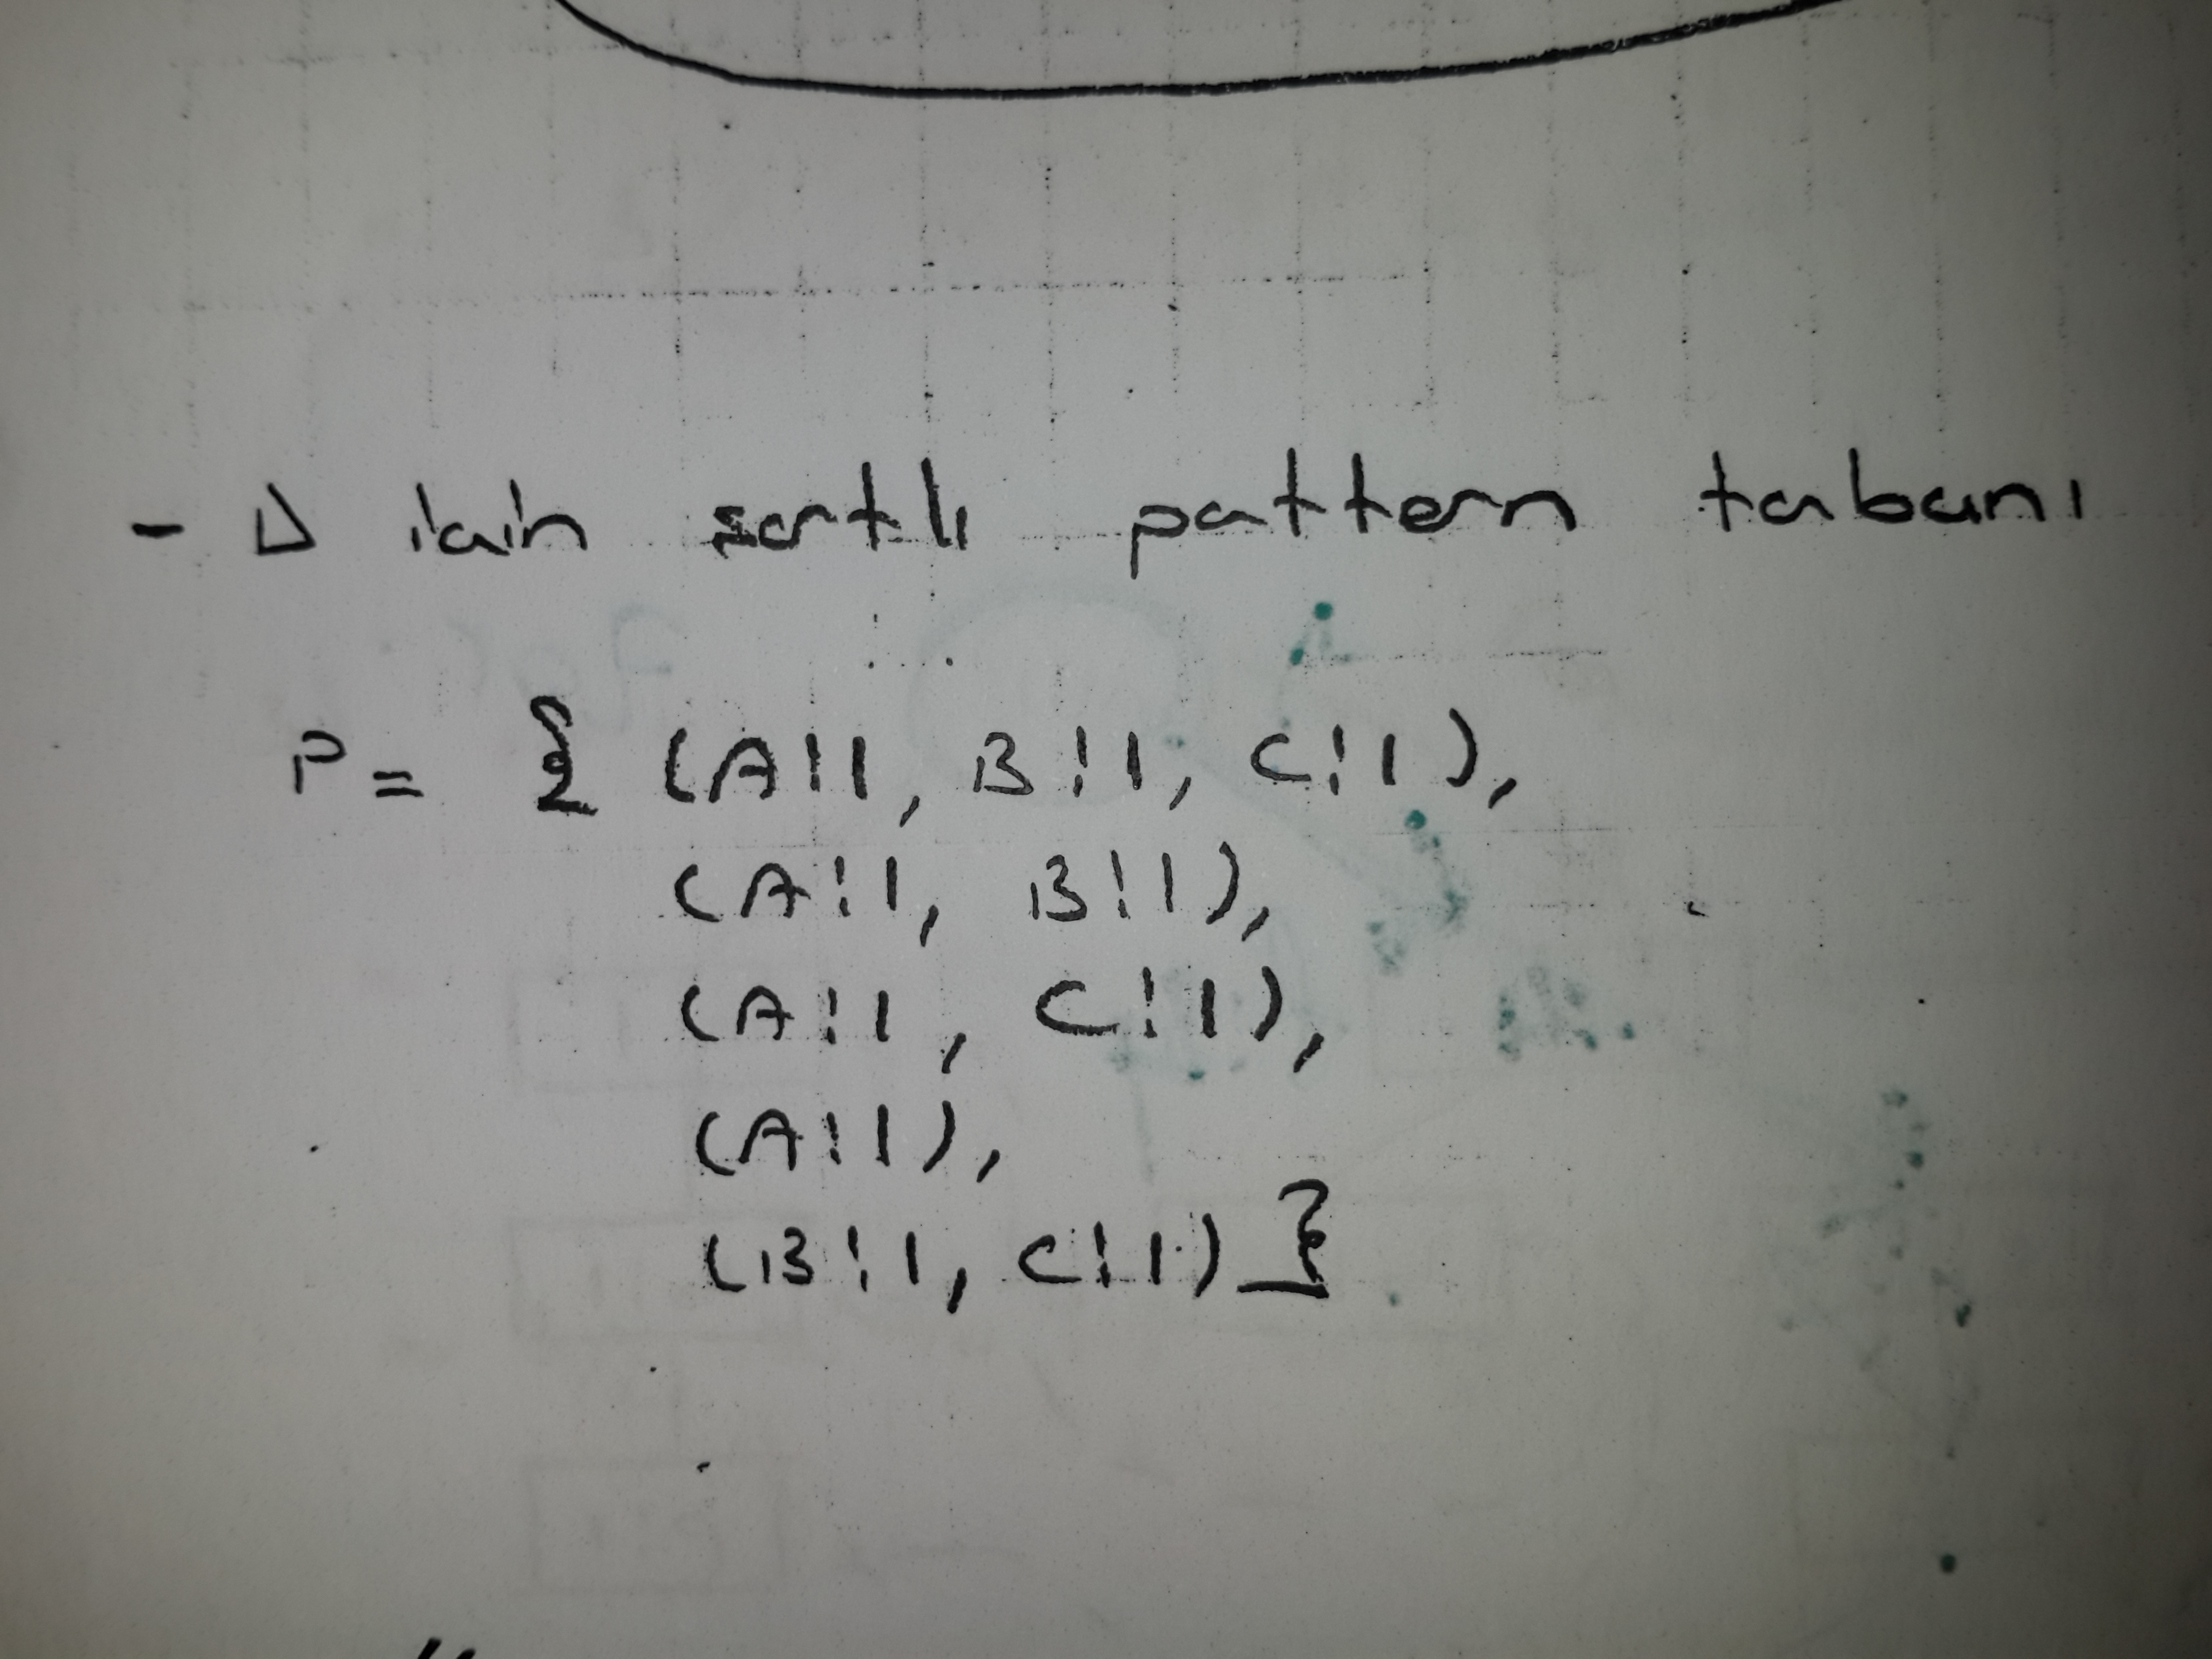 - D için şartlı pattern tabanı
P = { (A:1, B:1, C:1),
(A:1, B:1),
(A:1, C:1),
(A:1),
(B:1, C:1) }